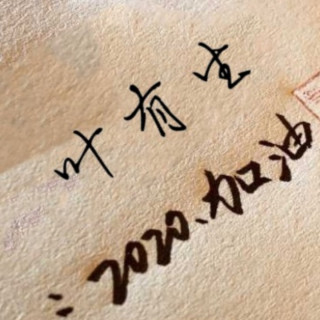 叶有生
2020、加油